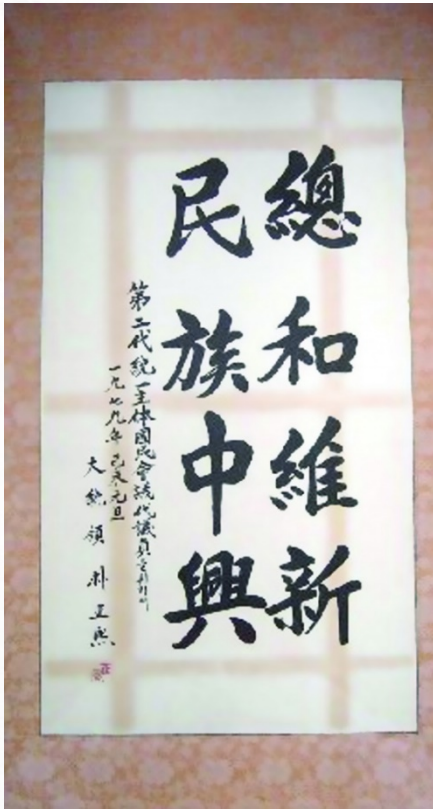 總和維新
民族中興
第二代統一主体國民會議代議員
一九七九年 己未元旦
大統領 朴正熙